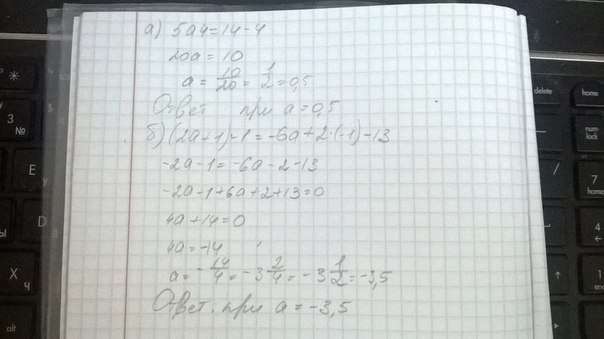 а) 5а4=14-4
20а = 10
а = 10/20 = 1/2 = 0,5
Ответ при а = 0,5
б) (2а+1)·-1 = -6а+2·(-1)-13
-2а-1 = -6а-2-13
-2а-1+6а+2+13=0
4а+14=0
4а=-14
а = -14/4 = -3 2/4 = -3 1/2 = -3,5
Ответ. при а = -3,5
*
3
№
Ы
D
X
Ч
alt
delete
home
num lock
/
7
home
4
1
end
0
ins